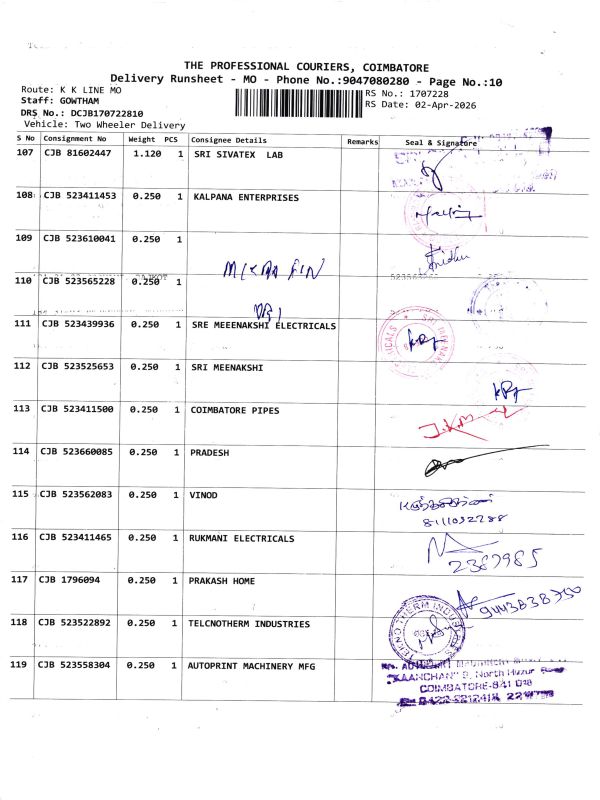 THE PROFESSIONAL COURIERS, COIMBATORE
Delivery Runsheet - MO - Phone No.:9047080280 - Page No.:10
Route: K K LINE MO RS No.: 1707228
Staff: GOWTHAM RS Date: 02-Apr-2026
DRS No.: DCJB170722810
Vehicle: Two Wheeler Delivery
S No Consignment No Weight PCS Consignee Details Remarks Seal & Signature
107 CJB 81602447 1.120 1 SRI SIVATEX LAB
108 CJB 523411453 0.250 1 KALPANA ENTERPRISES
109 CJB 523610041 0.250 1
110 CJB 523565228 0.250 1
111 CJB 523439936 0.250 1 SRE MEEENAKSHI ELECTRICALS
112 CJB 523525653 0.250 1 SRI MEENAKSHI
113 CJB 523411500 0.250 1 COIMBATORE PIPES
114 CJB 523660085 0.250 1 PRADESH
115 CJB 523562083 0.250 1 VINOD
8111032288
116 CJB 523411465 0.250 1 RUKMANI ELECTRICALS
2387985
117 CJB 1796094 0.250 1 PRAKASH HOME
9443838750
118 CJB 523522892 0.250 1 TELCNOTHERM INDUSTRIES
TEKNO THERM INDUSTRIES
119 CJB 523558304 0.250 1 AUTOPRINT MACHINERY MFG
"KAANCHAN" 9, North Huzur
COIMBATORE-641 018